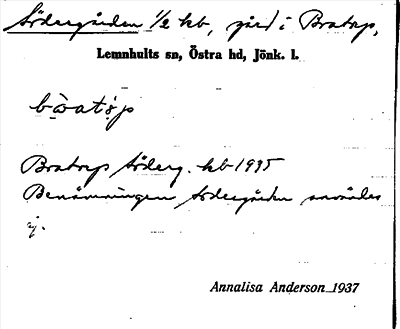 Södergården 1/2 kb, gård i Bratorp,
Lemnhults sn, Östra hd, Jönk. l.
Bratorp Söderg. kb 1935
Benämningen Södergården användes
ej.
Annalisa Anderson 1937